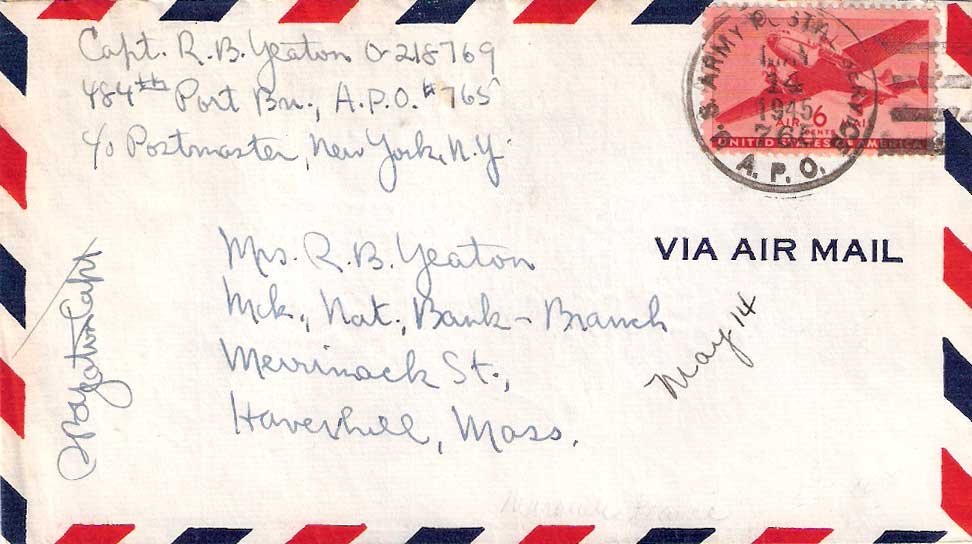 Capt. R. B. Yeaton O-218769
484th Port Bn., A.P.O. #765
c/o Postmaster, New York, N.Y.
U.S. ARMY POSTAL SERVICE
14
1945
765
A.P.O.
AIR 6 MAIL
CENTS
UNITED STATES OF AMERICA
VIA AIR MAIL
Mrs. R. B. Yeaton
Mck., Nat., Bank - Branch
Merrimack St.,
Haverhill, Mass.
May 14
RB Yeaton Capt
France